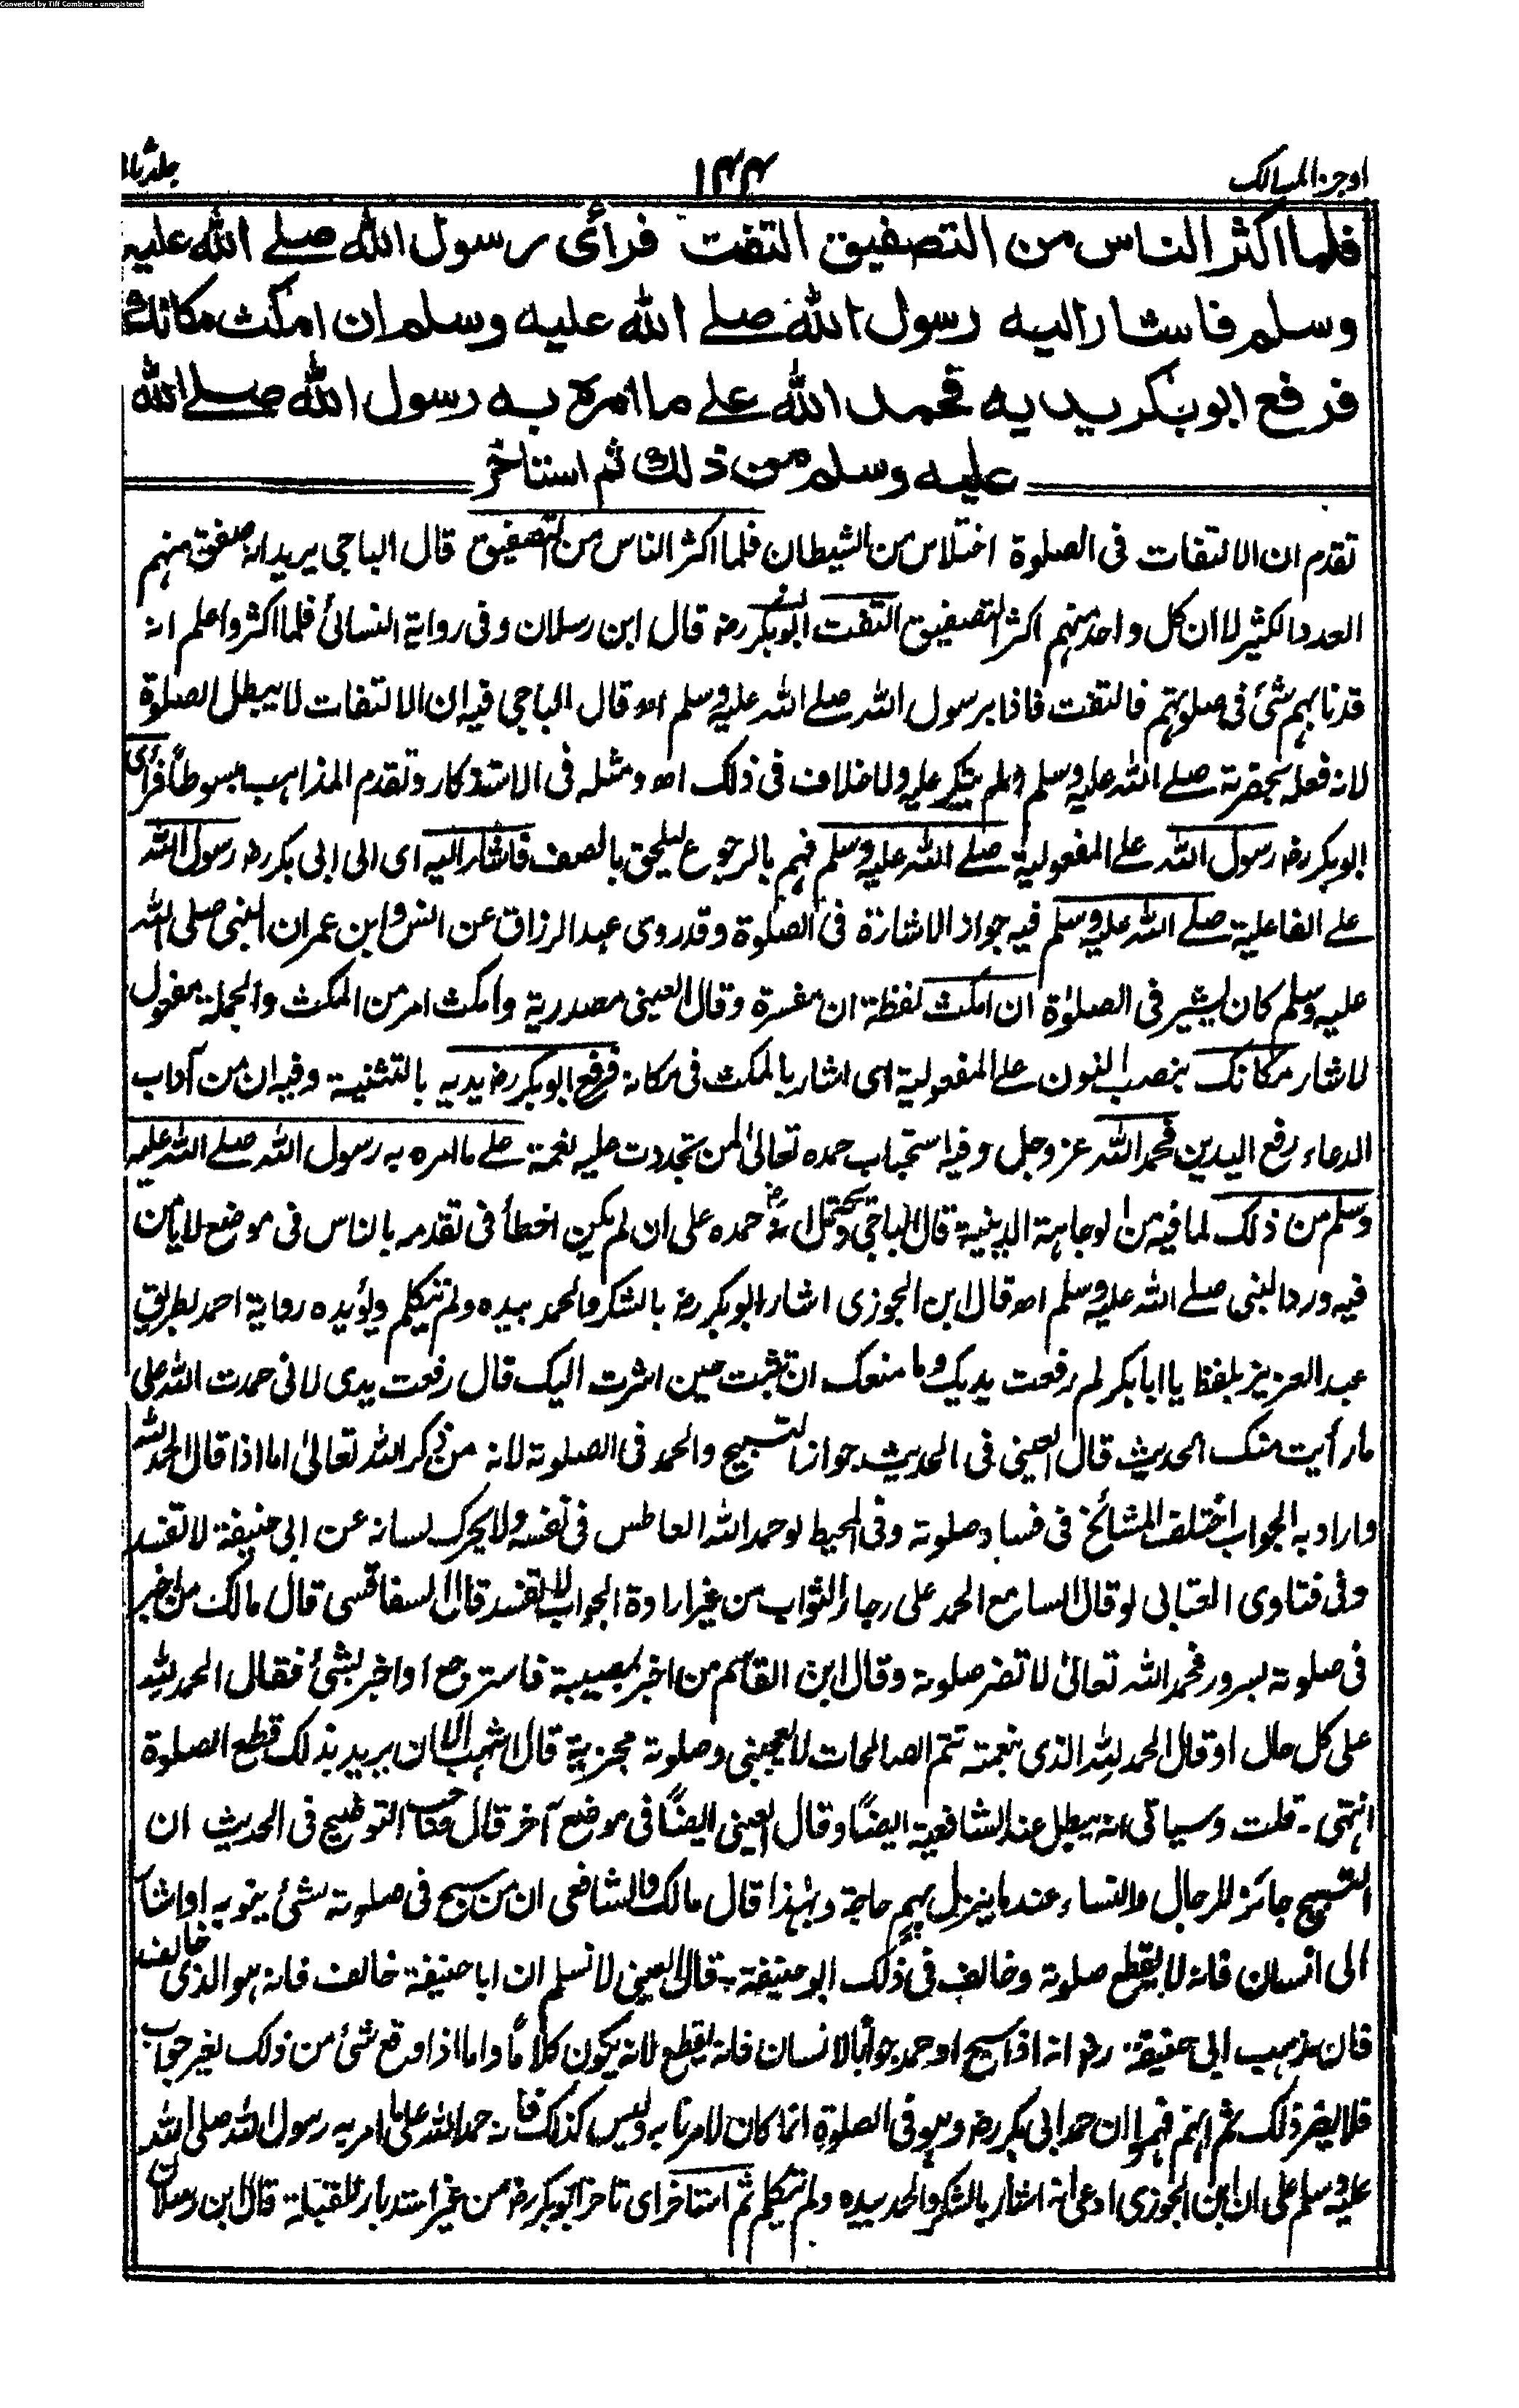 Converted by Tiff Combine - unregistered
اوجز المسالك ١٤٤ جلد ثا
فلما اكثر الناس من التصفيق التفت فرأى رسول الله صلے الله عليه
وسلم فاشار اليه رسول الله صلے الله عليه وسلم ان امكث مكانك
فرفع ابو بكر يديه فحمد الله علے ما امره به رسول الله صلے الله
عليه وسلم من ذلك ثم استأخر
تقدم ان الالتفات فى الصلوة اختلاس من الشيطان فلما اكثر الناس من التصفيق قال الباجى يريد انه صفق منهم
العدد الكثير لا ان كل واحد منهم اكثر التصفيق التفت ابو بكر رض قال ابن رسلان وفى رواية النسائى فلما اكثروا علم انه
قد نابهم شئ فى صلوتهم فالتفت فاذا برسول الله صلے الله عليه وسلم اھ قال الباجى فيه ان الالتفات لا يبطل الصلوة
لانه فعله بحضرته صلے الله عليه وسلم ولم ينكر عليه ولا خلاف فى ذلك اھ ومثله فى الاستذكار وتقدم المذاهب مبسوطاً فرأى
ابو بكر رض رسول الله علے المفعولية صلے الله عليه وسلم فهم بالرجوع ليلحق بالصف فاشار اليه اى الى ابى بكر رض رسول الله
علے الفاعلية صلے الله عليه وسلم فيه جواز الاشارة فى الصلوة وقد روى عبد الرزاق عن انس وابن عمر ان النبى صلى الله
عليه وسلم كان يشير فى الصلوٰة ان امكث لفظة ان مفسرة وقال العينى مصدرية وامكث امر من المكث والجملة مفعول
لاشار مكانك بنصب النون علے المفعولية اى اشار بالمكث فى مكانه فرفع ابو بكر رض يديه بالتثنية وفيه ان من آداب
الدعاء رفع اليدين فحمد الله عز وجل وفيه استحباب حمده تعالىٰ لمن تجددت عليه نعمة علے ما امره به رسول الله صلے الله عليه
وسلم من ذلك لما فيه من الوجاهة الدينية قال الباجى ويحتمل انه رض حمده على ان لم يكن اخطأ فى تقدمه بالناس فى موضع لا يأمن
فيه ورد النبى صلے الله عليه وسلم اھ قال ابن الجوزى اشار ابو بكر رض بالشكر والحمد بيده ولم يتكلم ويؤيده رواية احمد بطريق
عبد العزيز بلفظ يا ابا بكر لم رفعت يديك وما منعك ان تثبت حين اشرت اليك قال رفعت يدى لانى حمدت الله على
ما رأيت منك الحديث قال العينى فى الحديث جواز التسبيح والحمد فى الصلوة لانه من ذكر الله تعالىٰ اما اذا قال الحمد لله
واراد به الجواب اختلف المشائخ فى فساد صلوته وفى المحيط لو حمد الله العاطس فى نفسه ولا يحرك لسانه عن ابى حنيفة لا تفسد
وفى فتاوى العتابى لو قال السامع الحمد على رجاء الثواب من غير ارادة الجواب لا تفسد قال السفاقسى قال مالك من اخبر
فى صلوته بسرور فحمد الله تعالىٰ لا تضر صلوته وقال ابن القاسم من اخبر بمصيبة فاسترجع او اخبر بشئ فقال الحمد لله
على كل حال او قال الحمد لله الذى بنعمته تتم الصالحات لا يعجبنى وصلوته مجزية قال اشهب الا ان يريد بذلك قطع الصلوة
انتهى - قلت وسياتى انه يبطل عند الشافعية ايضًا وقال العينى ايضًا فى موضع آخر قال صاحب التوضيح فى الحديث ان
التسبيح جائز للرجال والنساء عند ما ينزل بهم حاجة وبهٰذا قال مالك والشافعى ان من سبح فى صلوته لشئ ينوبه او اشار
الى انسان فانه لا يقطع صلوته وخالف فى ذلك ابو حنيفة - قال العينى لا نسلم ان ابا حنيفة خالف فانه هو الذى خالفه
فان مذهب ابى حنيفة رض انه اذا سبح او حمد جوابًا لانسان فانه يقطع لانه يكون كلامًا واما اذا وقع شئ من ذلك لغير جواب
فلا يضر ذلك ثم انهم فهموا ان حمد ابى بكر رض وهو فى الصلوة انما كان لامر نابه وليس كذلك فانه حمد الله على ما امر به رسول الله صلى الله
عليه وسلم على ان ابن الجوزى ادعى انه اشار بالشكر والحمد بيده ولم يتكلم ثم استاخر اى تاخر ابو بكر رض من غير استدبار للقبلة قال ابن رسلان